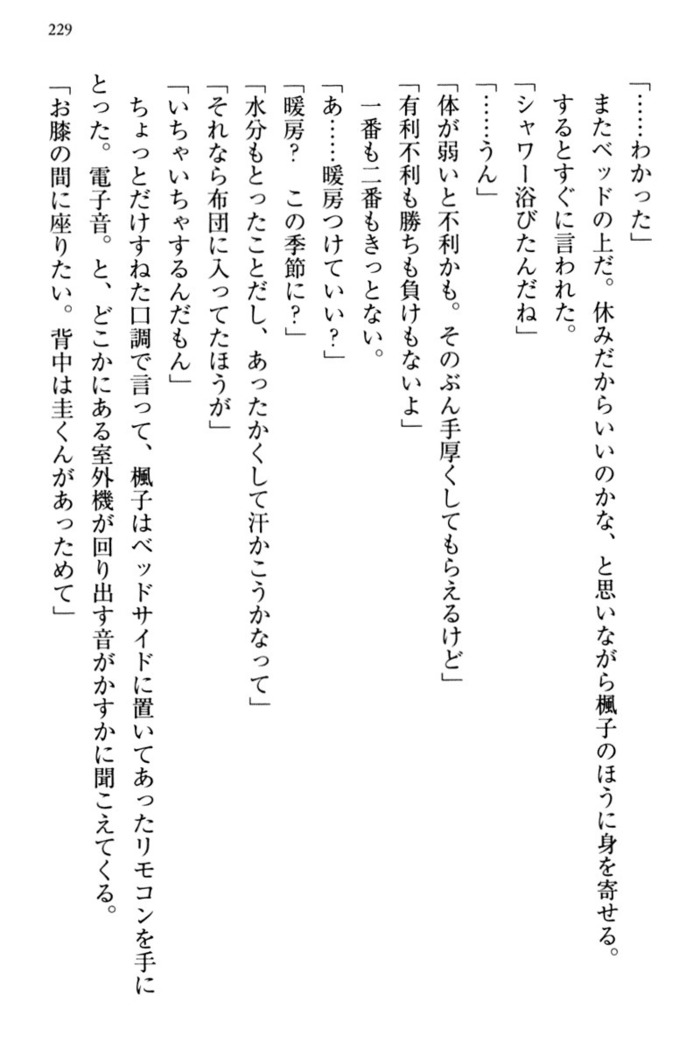 229
「……わかった」
　またベッドの上だ。休みだからいいのかな、と思いながら楓子のほうに身を寄せる。
　するとすぐに言われた。
「シャワー浴びたんだね」
「……うん」
「体が弱いと不利かも。そのぶん手厚くしてもらえるけど」
「有利不利も勝ちも負けもないよ」
　一番も二番もきっとない。
「あ……暖房つけていい？」
「暖房？　この季節に？」
「水分もとったことだし、あったかくして汗かこうかなって」
「それなら布団に入ってたほうが」
「いちゃいちゃするんだもん」
　ちょっとだけすねた口調で言って、楓子はベッドサイドに置いてあったリモコンを手に
とった。電子音。と、どこかにある室外機が回り出す音がかすかに聞こえてくる。
「お膝の間に座りたい。背中は圭くんがあっためて」